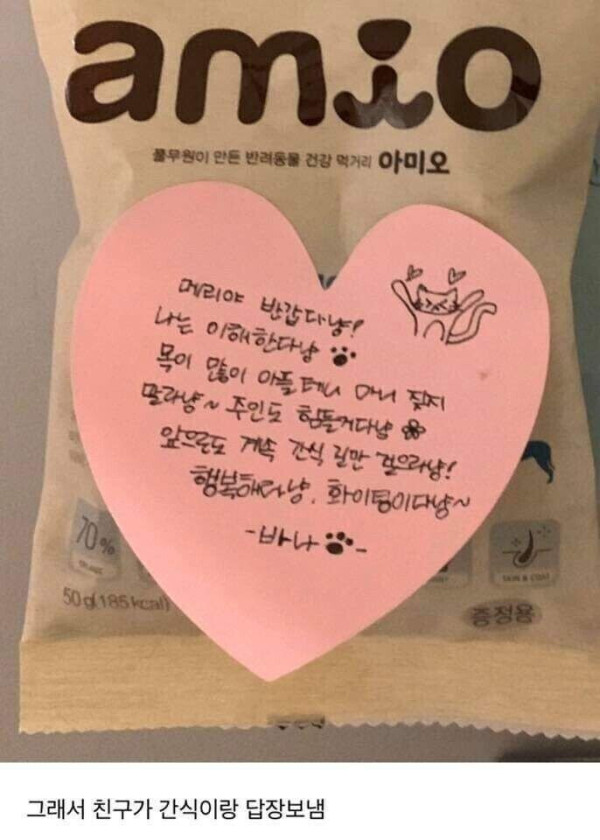 amio
풀무원이 만든 반려동물 건강 먹거리 아미오
메리야 반갑다냥!
나는 이해한다냥
목이 많이 아플테니 마니 짖지
말라냥~ 주인도 힘들거다냥
앞으로도 계속 간식 길만 걸으라냥!
행복해라냥. 화이팅이다냥~
-바나-
70%
50g(185kcal)
SKIN & COAT
증정용
그래서 친구가 간식이랑 답장보냄